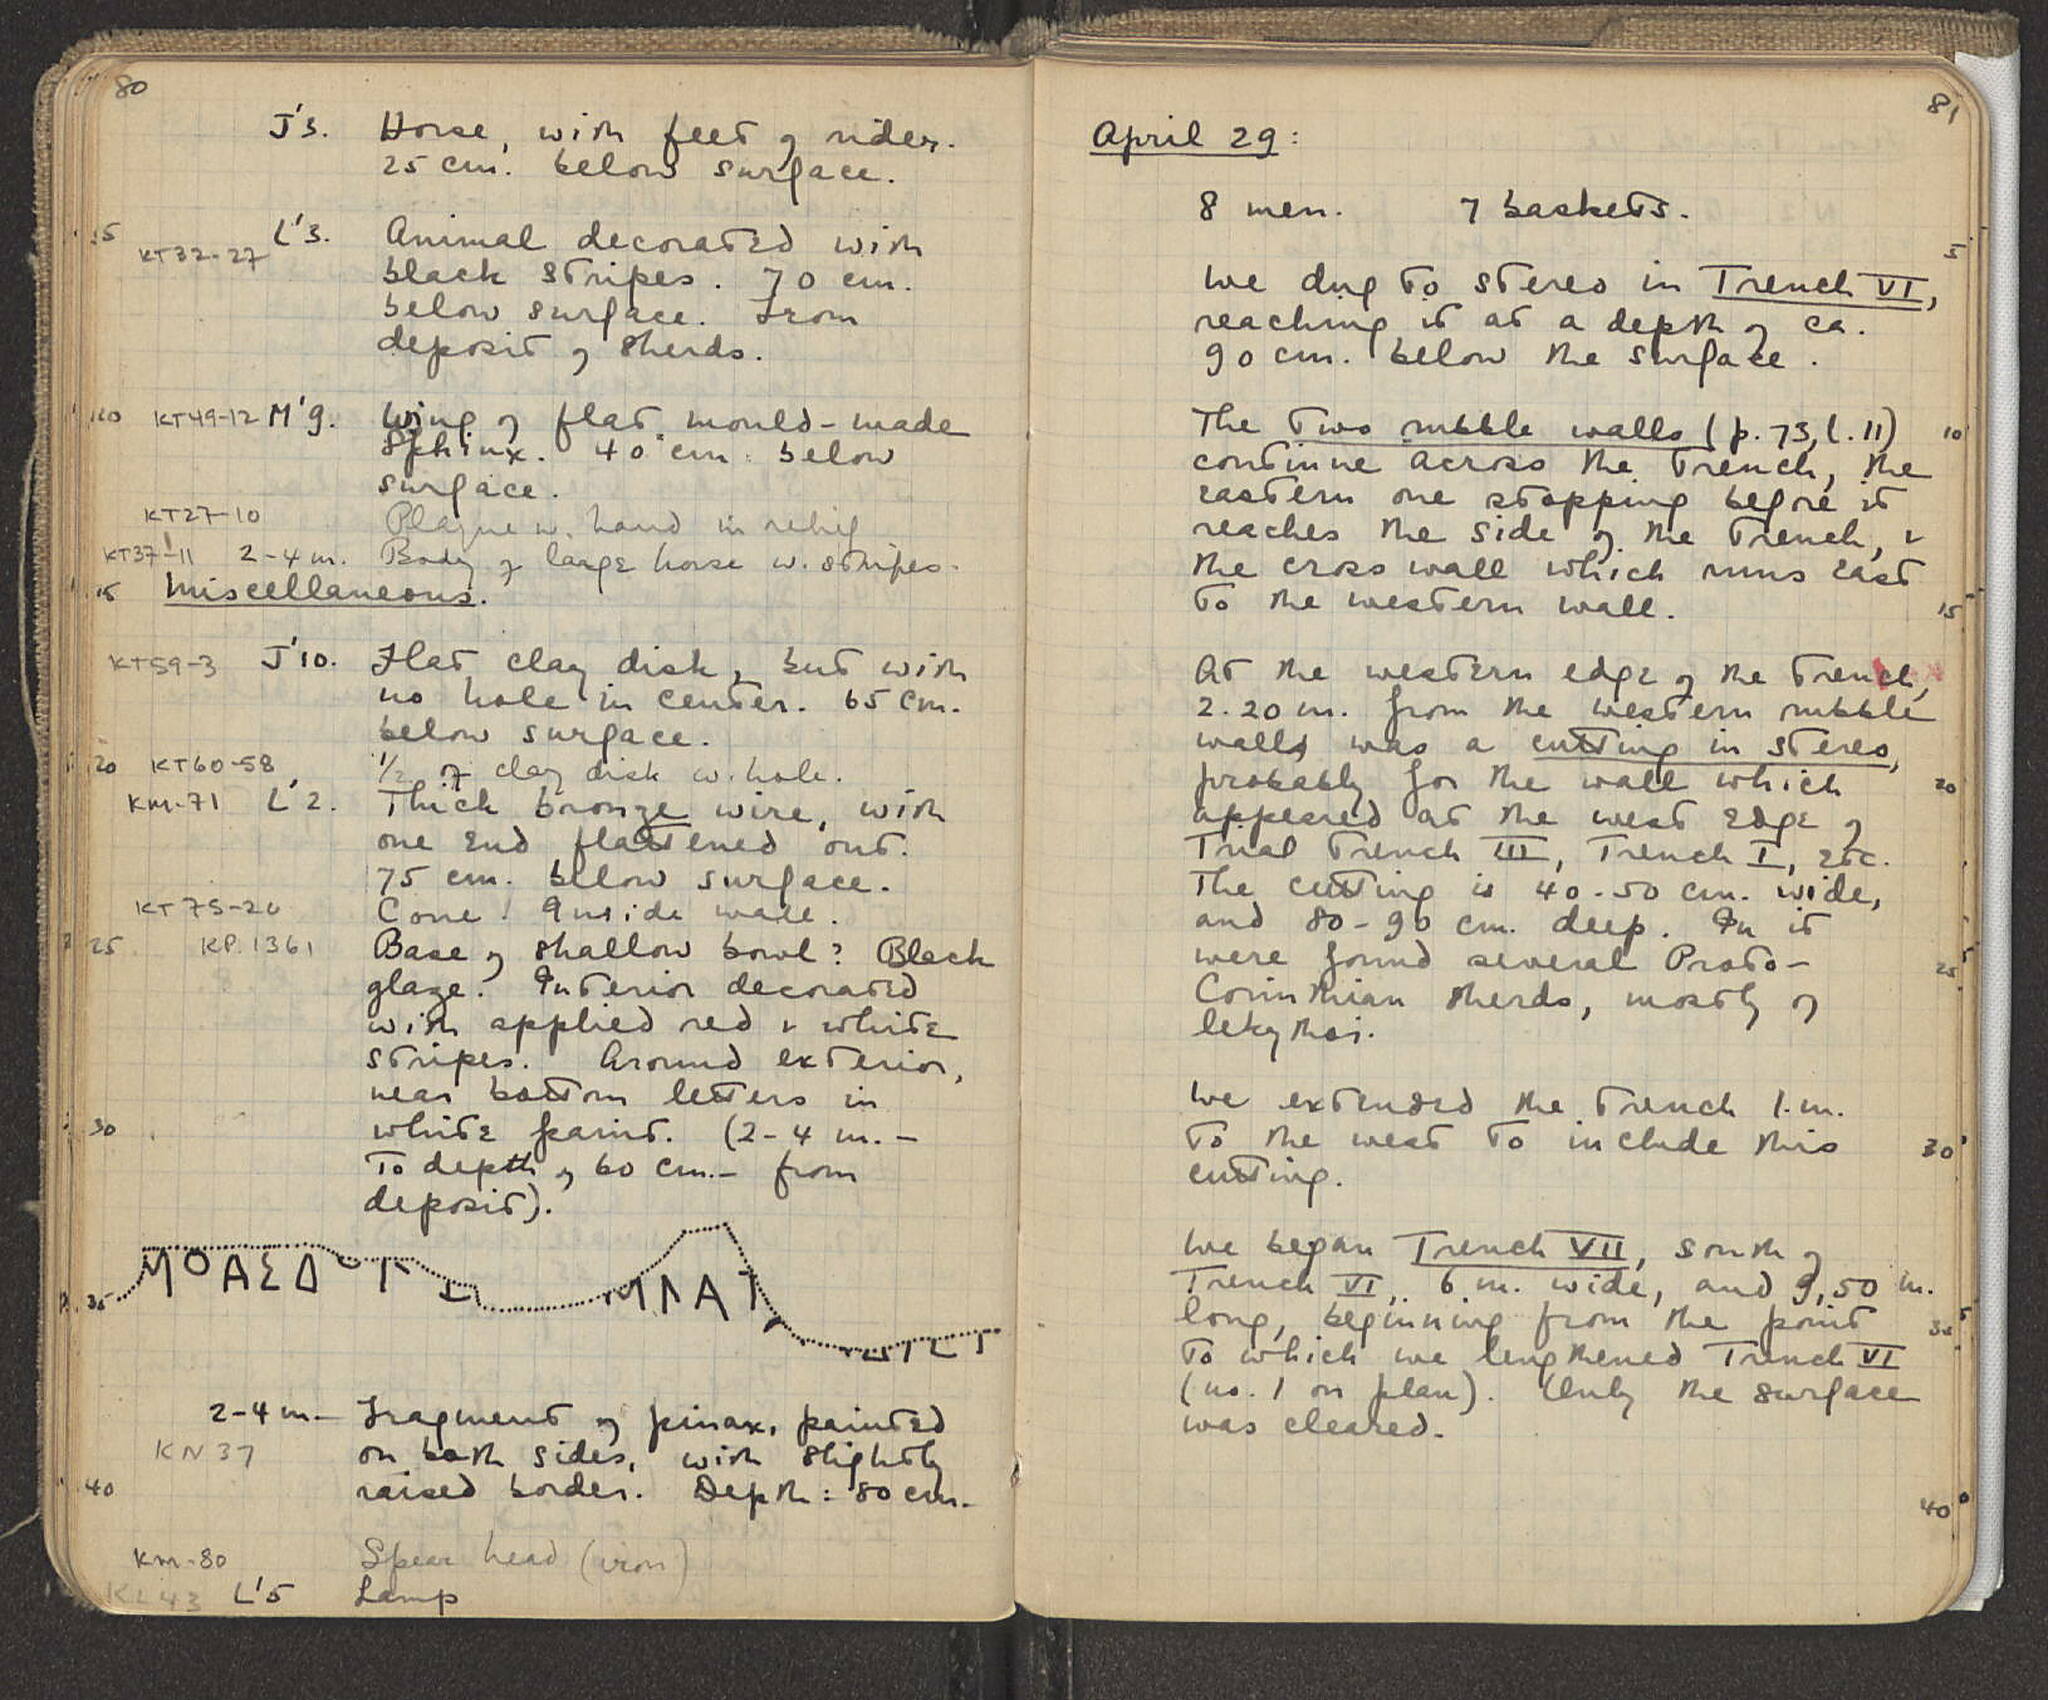 80
J'3. Horse, with feet of rider.
25 cm. below surface.
5 KT32-27 L'3. Animal decorated with
black stripes. 70 cm.
below surface. From
deposit of sherds.
10 KT49-12 M'9. Wing of flat mould-made
Sphinx. 40 cm. below
surface.
KT27-10 Plaque w. hand in relief
KT37-11 2-4 m. Body of large horse w. stripes.
15 Miscellaneous.
KT59-3 J'10. Flat clay disk, but with
no hole in center. 65 cm.
below surface.
20 KT60-58 1/2 of clay disk w. hole.
KM-71 L'2. Thick bronze wire, with
one end flattened out.
75 cm. below surface.
KT75-20 Cone! Inside wall.
25 KP.1361 Base of shallow bowl? Black
glaze. Interior decorated
with applied red & white
stripes. Around exterior,
near bottom letters in
30 white paint. (2-4 m. -
To depth of 60 cm. - from
deposit).
35
2-4 m - Fragment of pinax, painted
KN 37 on both sides, with slightly
40 raised border. Depth: 80 cm.
KM-80 Spear head (iron)
KL43 L'5 Lamp
81
April 29:
8 men. 7 baskets.
5
We dug to stereo in Trench VI,
reaching it at a depth of ca.
90 cm. below the surface.
The two rubble walls (p. 73, l. 11) 10
continue across the trench, the
eastern one stopping before it
reaches the side of the trench, &
the cross wall which runs east
to the western wall. 15
At the western edge of the trench,
2.20 m. from the western rubble
wall, was a cutting in stereo,
probably for the wall which 20
appeared at the west edge of
Trial Trench III, Trench I, etc.
The cutting is 40-50 cm. wide,
and 80-90 cm. deep. In it
were found several Proto- 25
Corinthian sherds, mostly of
lekythoi.
We extended the trench 1 m.
to the west to include this 30
cutting.
We began Trench VII, south of
Trench VI, 6 m. wide, and 9,50 m.
long, beginning from the point 35
to which we lengthened Trench VI
(no. 1 on plan). Only the surface
was cleared.
40